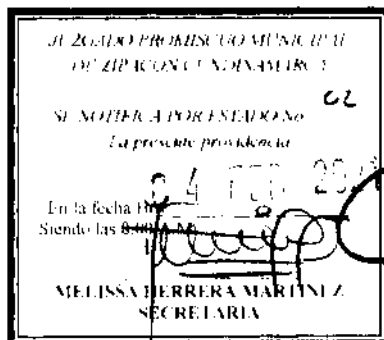 JUZGADO PROMISCUO MUNICIPAL
DE ZIPACON CUNDINAMARCA
02
SE NOTIFICA POR ESTADO No
La presente providencia
4 FEB
En la fecha
Siendo las 8:00
MELISSA HERRERA MARTINEZ
SECRETARIA